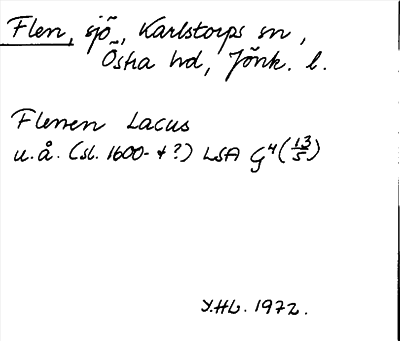 Flen, sjö, Karlstorps sn,
Östra hd, Jönk. l.
Flenen Lacus
u.å. (sl. 1600-t?) LSA G4 (13/5)
Y.HL. 1972.